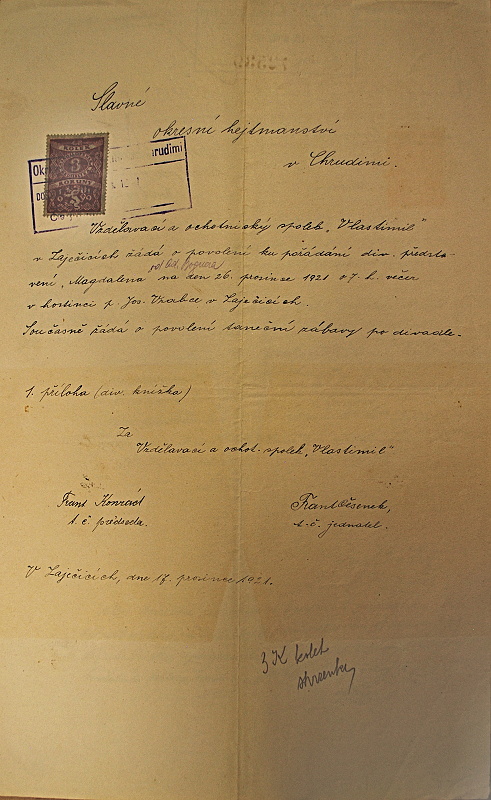 Slavné
okresní hejtmanství
v Chrudimi.
KOLEK
KORUNY
Ok hrudimi
Vzdělavací a ochotnický spolek „Vlastimil"
v Zaječicích žádá o povolení ku pořádání div. předsta-
vení „Magdalena" od na den 26. prosince 1921 o 7. h. večer
v hostinci p. Jos. Vrabce v Zaječicích.
Současně žádá o povolení taneční zábavy po divadle.
1. příloha (div. knížka)
Za
Vzdělavací a ochot. spolek „Vlastimil"
Frant Konrád
t. č. předseda.
Frant
t. č. jednatel.
V Zaječicích, dne 17. prosince 1921.
3 K kolek